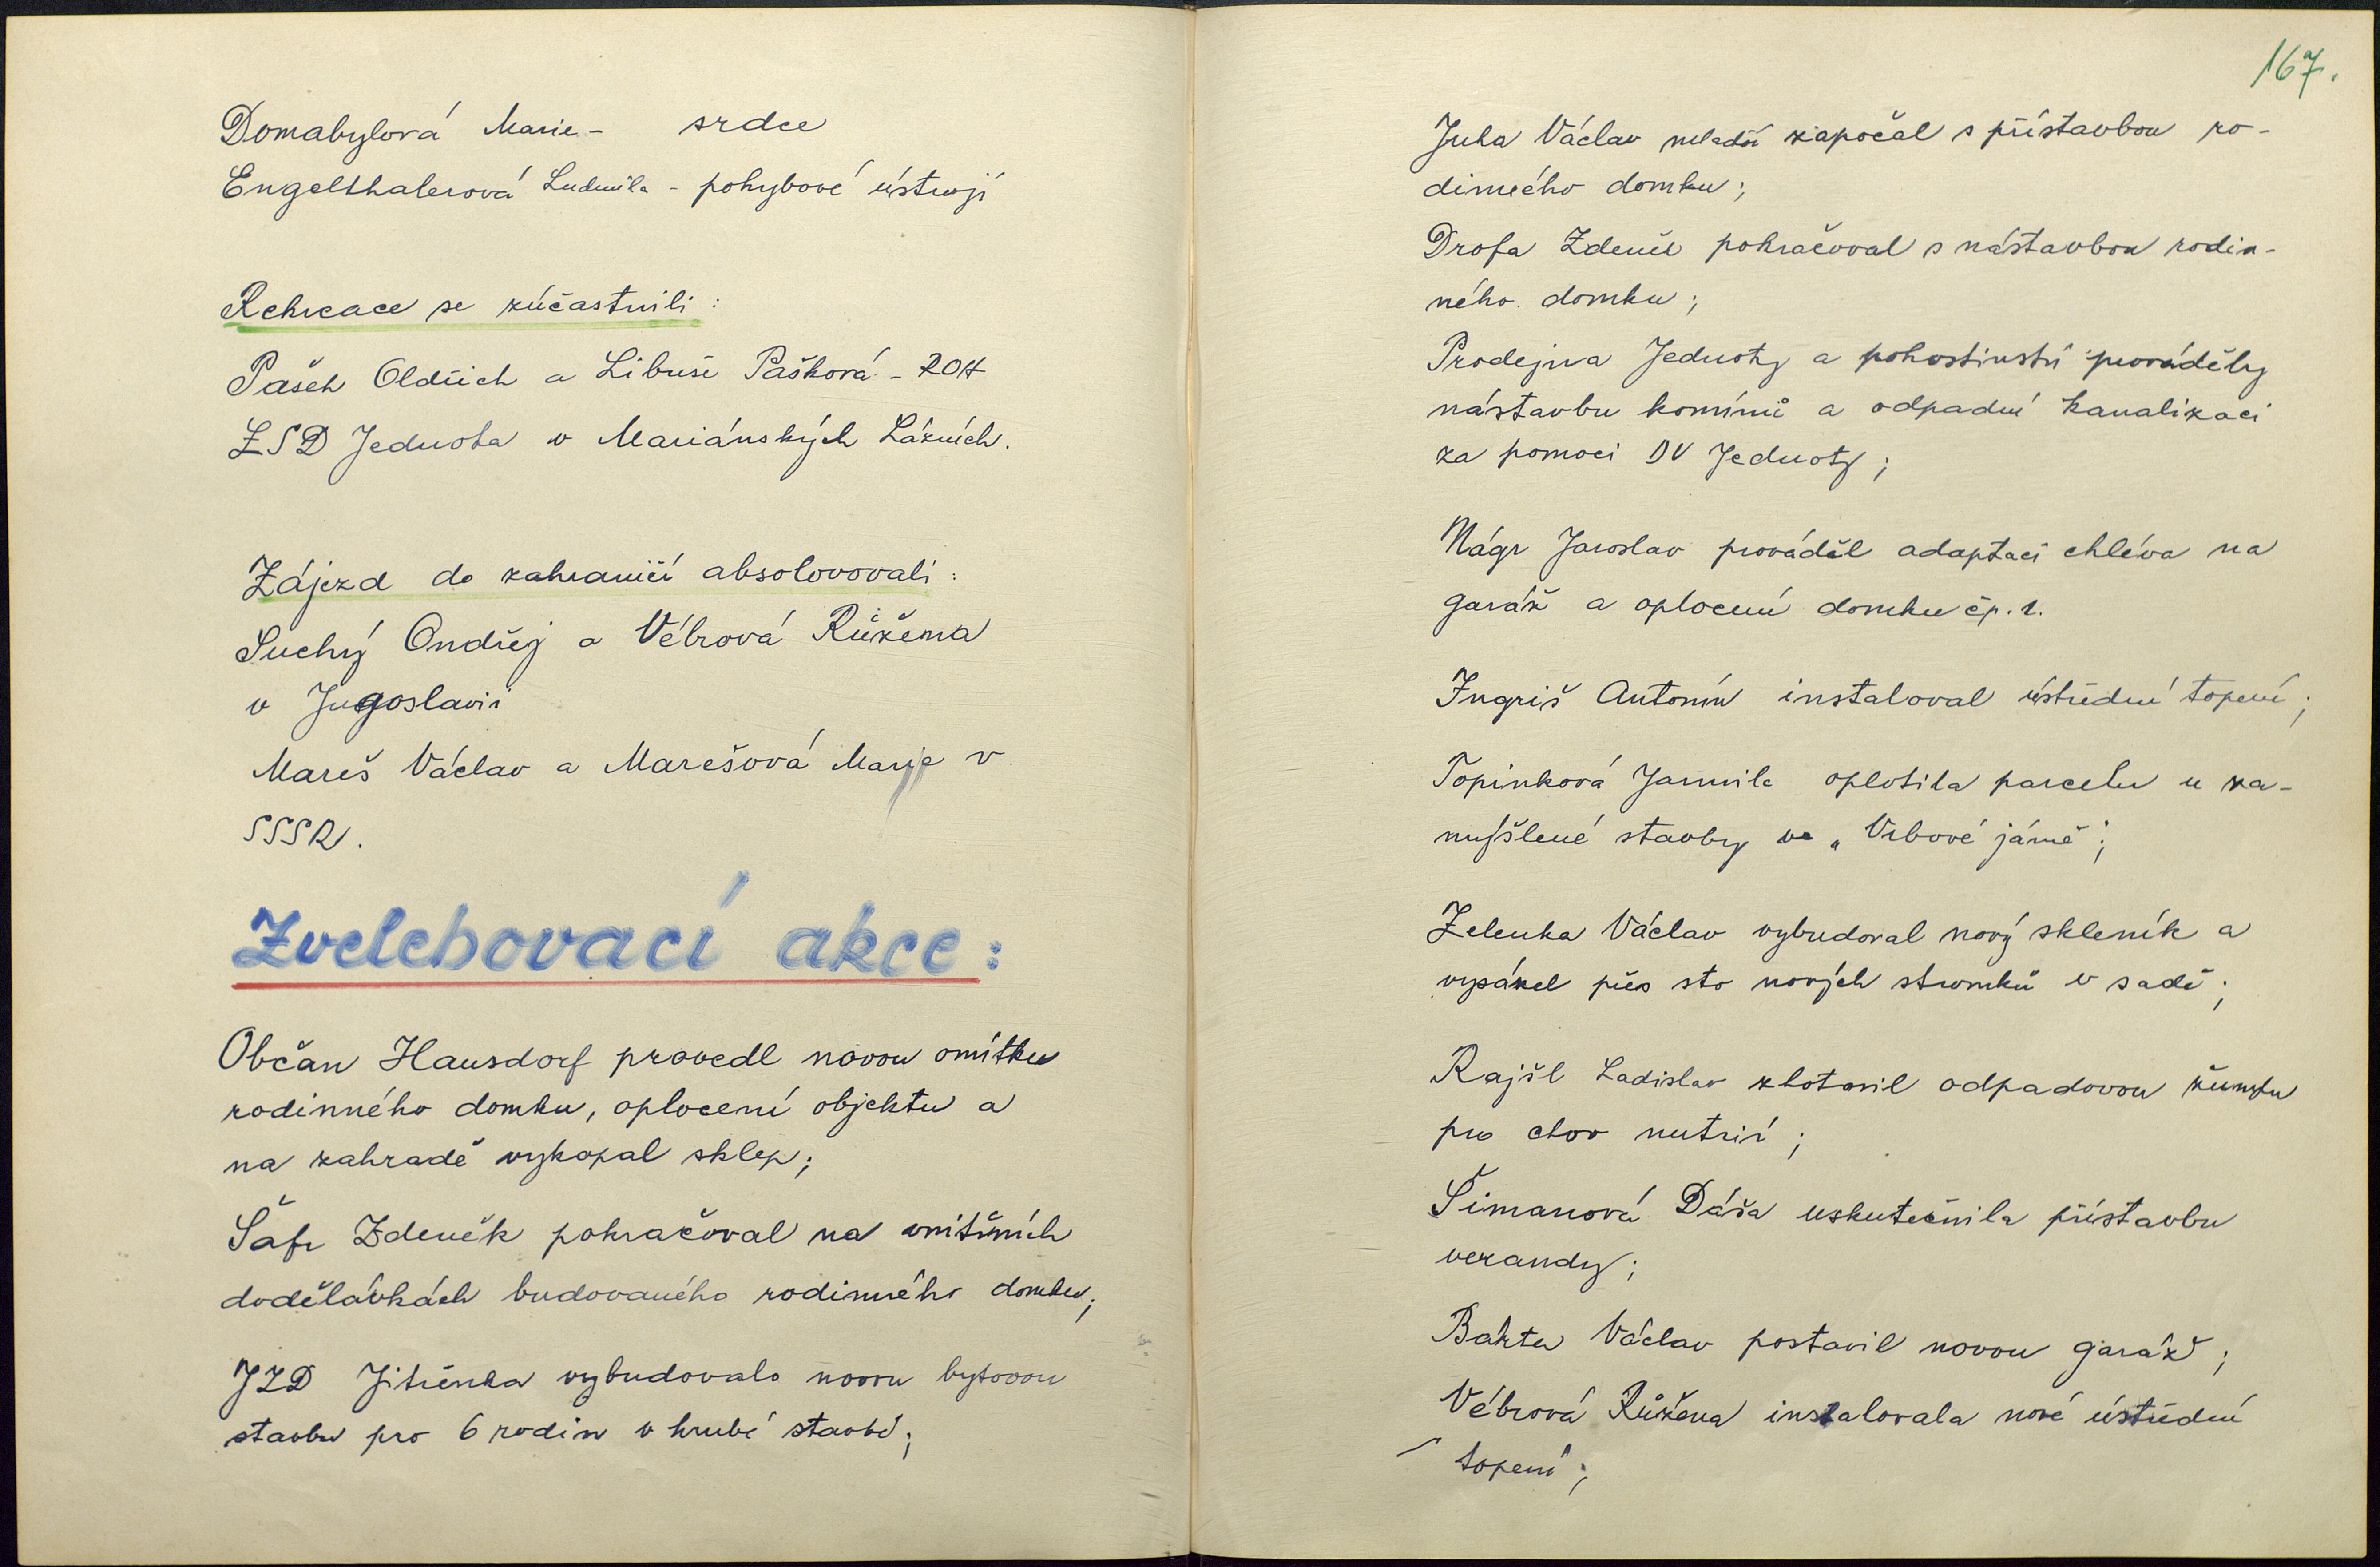 Domabylová Marie - srdce
Engelthalerová Ludmila - pohybové ústrojí
Rekreace se zúčastnili:
Pašek Oldřich a Libuše Pašková - ROH
LSD Jednota v Mariánských Lázních.
Zájezd do zahraničí absolvovali:
Suchý Ondřej a Vébrová Růžena
v Jugoslavii
Mareš Václav a Marešová Marie v
SSSR.
Zvelebovací akce:
Občan Hausdorf provedl novou omítku
rodinného domku, oplocení objektu a
na zahradě vykopal sklep;
Šafr Zdeněk pokračoval na vnitřních
dodělávkách budovaného rodinného domku;
JZD Jitřenka vybudovalo novou bytovou
stavbu pro 6 rodin v hrubé stavbě;
167.
Juha Václav mladší započal s přístavbou ro-
dinného domku;
Drofa Zdeněk pokračoval s nástavbou rodin-
ného domku;
Prodejna Jednoty a pohostinství prováděly
nástavbu komínů a odpadní kanalizaci
za pomoci DV Jednoty;
Mágr Jaroslav prováděl adaptaci chléva na
garáž a oplocení domku čp. 1.
Ingriš Antonín instaloval ústřední topení;
Topinková Jarmila oplotila parcelu u za-
myšlené stavby ve "Vrbové jámě";
Zelenka Václav vybudoval nový skleník a
vysázel přes sto nových stromků v sadě;
Rajšl Ladislav zhotovil odpadovou žumpu
pro chov nutrií;
Šimanová Dáša uskutečnila přístavbu
verandy;
Václav postavil novou garáž;
Vébrová Růžena instalovala nové ústřední
topení;